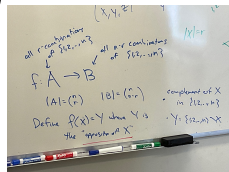 (x,y,z)
|x|=r
all r-combinations of {1,2,...,n}
all n-r combinations of {1,2,...,n}
f: A → B
|A| = (n r)
|B| = (n n-r)
Define f(X)=Y where Y is
the "opposite of X"
• complement of X
in {1,2,...,n}
• Y = {1,2,...,n} \ X